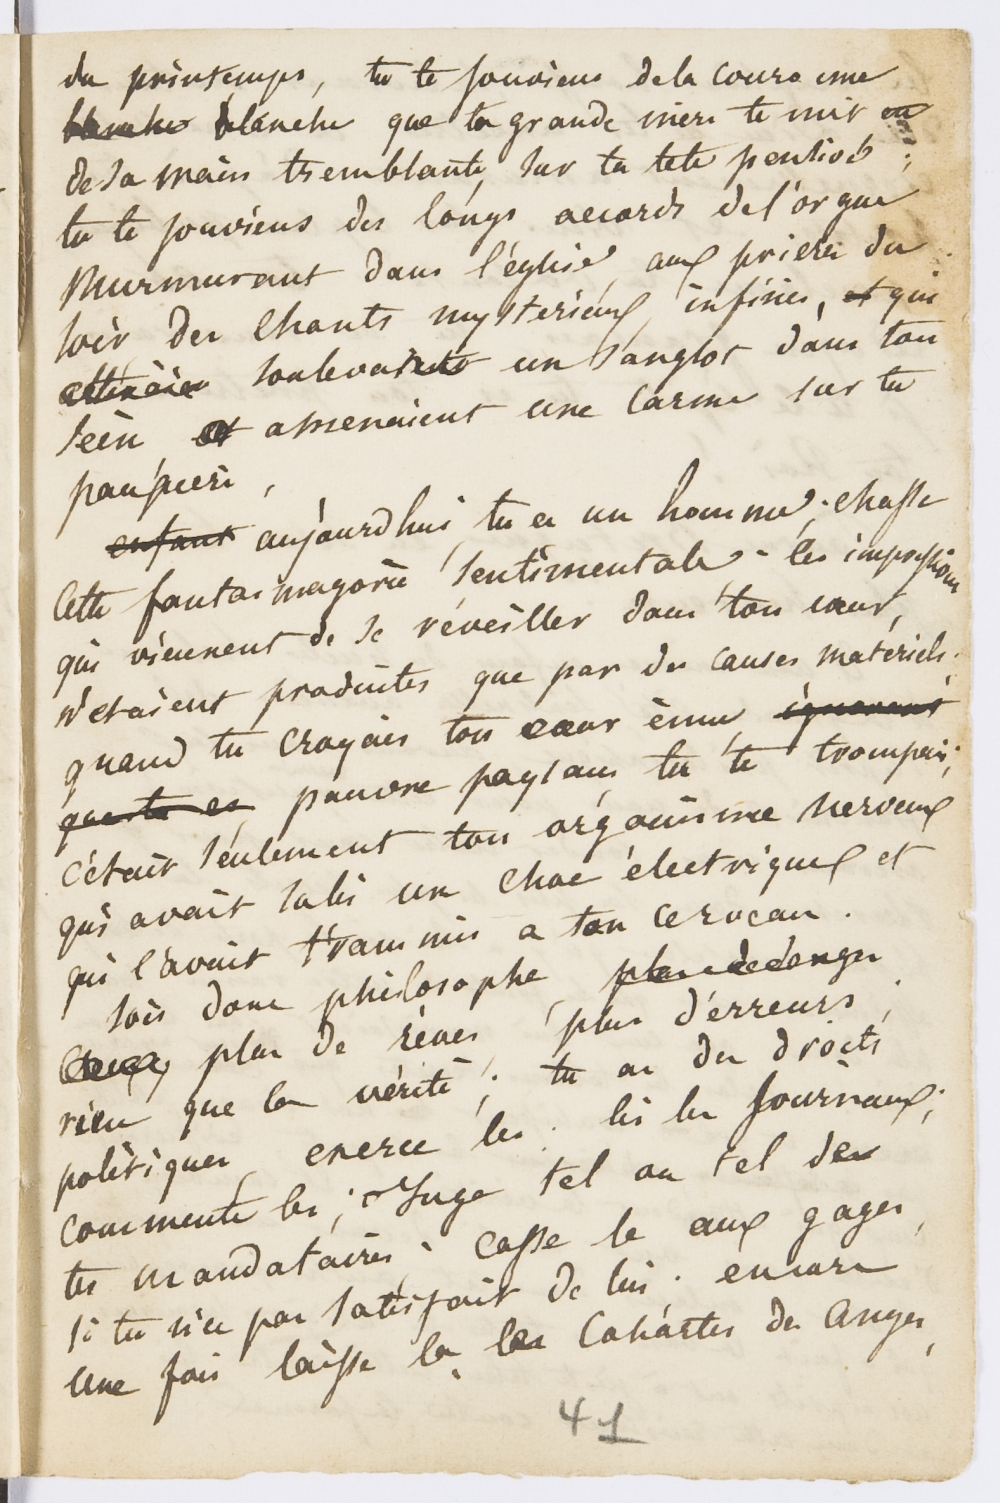 du printemps, tu te souviens de la couronne
blanche blanche que ta grande mère te mit
de sa main tremblante, sur ta tête penchée ;
tu te souviens des longs accords de l'orgue
murmurant dans l'église, aux prieres du
soir, des chants mysterieux, infinis, et qui
soulevaient un sanglot dans ton
sein, et amenaient une larme sur ta
paupière,
enfant aujourd'hui, tu es un homme ; chasse
cette fantasmagorie sentimentale - les impressions
qui viennent de se réveiller dans ton cœur,
n'etaient produites que par des causes matériels.
quand tu croyais ton cœur ému ignorant
que tu es, pauvre paysan, tu te trompais ;
c'était seulement ton organisme nerveux
qui avait subi un choc électrique et
qui l'avait transmis a ton cerveau.
sois donc philosophe
plus de rêves, plus d'erreurs ;
rien que la vérité ; tu as des droits
politiques, exerce les. lis les journaux ;
commente les ; juge tel ou tel de
tes mandataires ; casse le aux gages,
si tu n'es pas satisfait de lui. encore
une fois laisse là les cohortes des anges,
41